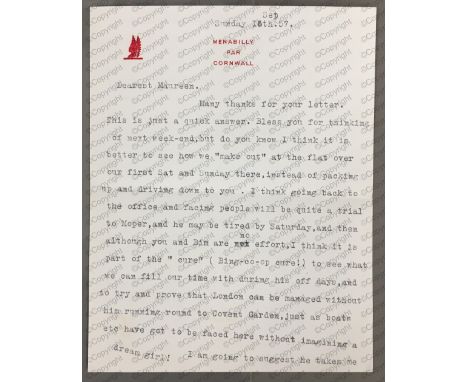 Sep
Sunday 15th.57.
MENABILLY
PAR
CORNWALL
Dearest Maureen.
Many thanks for your letter.
This is just a quick answer. Bless you for thinking
of next week-end,but do you know I think it is
better to see how we "make out" at the flat over
our first Sat and Sunday there,instead of packing
up and driving down to you . I think going back to
the office and facing people will be quite a trial
to Moper,and he may be tired by Saturday,and then
no
although you and Bim are effort,I think it is
part of the " cure" ( Bing-co-op cure!) to see what
we can fill our time with during his off days,and
to try and prove that London can be managed without
him running round to Covent Garden,just as boats
etc have got to be faced here without imagining a
dream girl! I am going to suggest he takes me